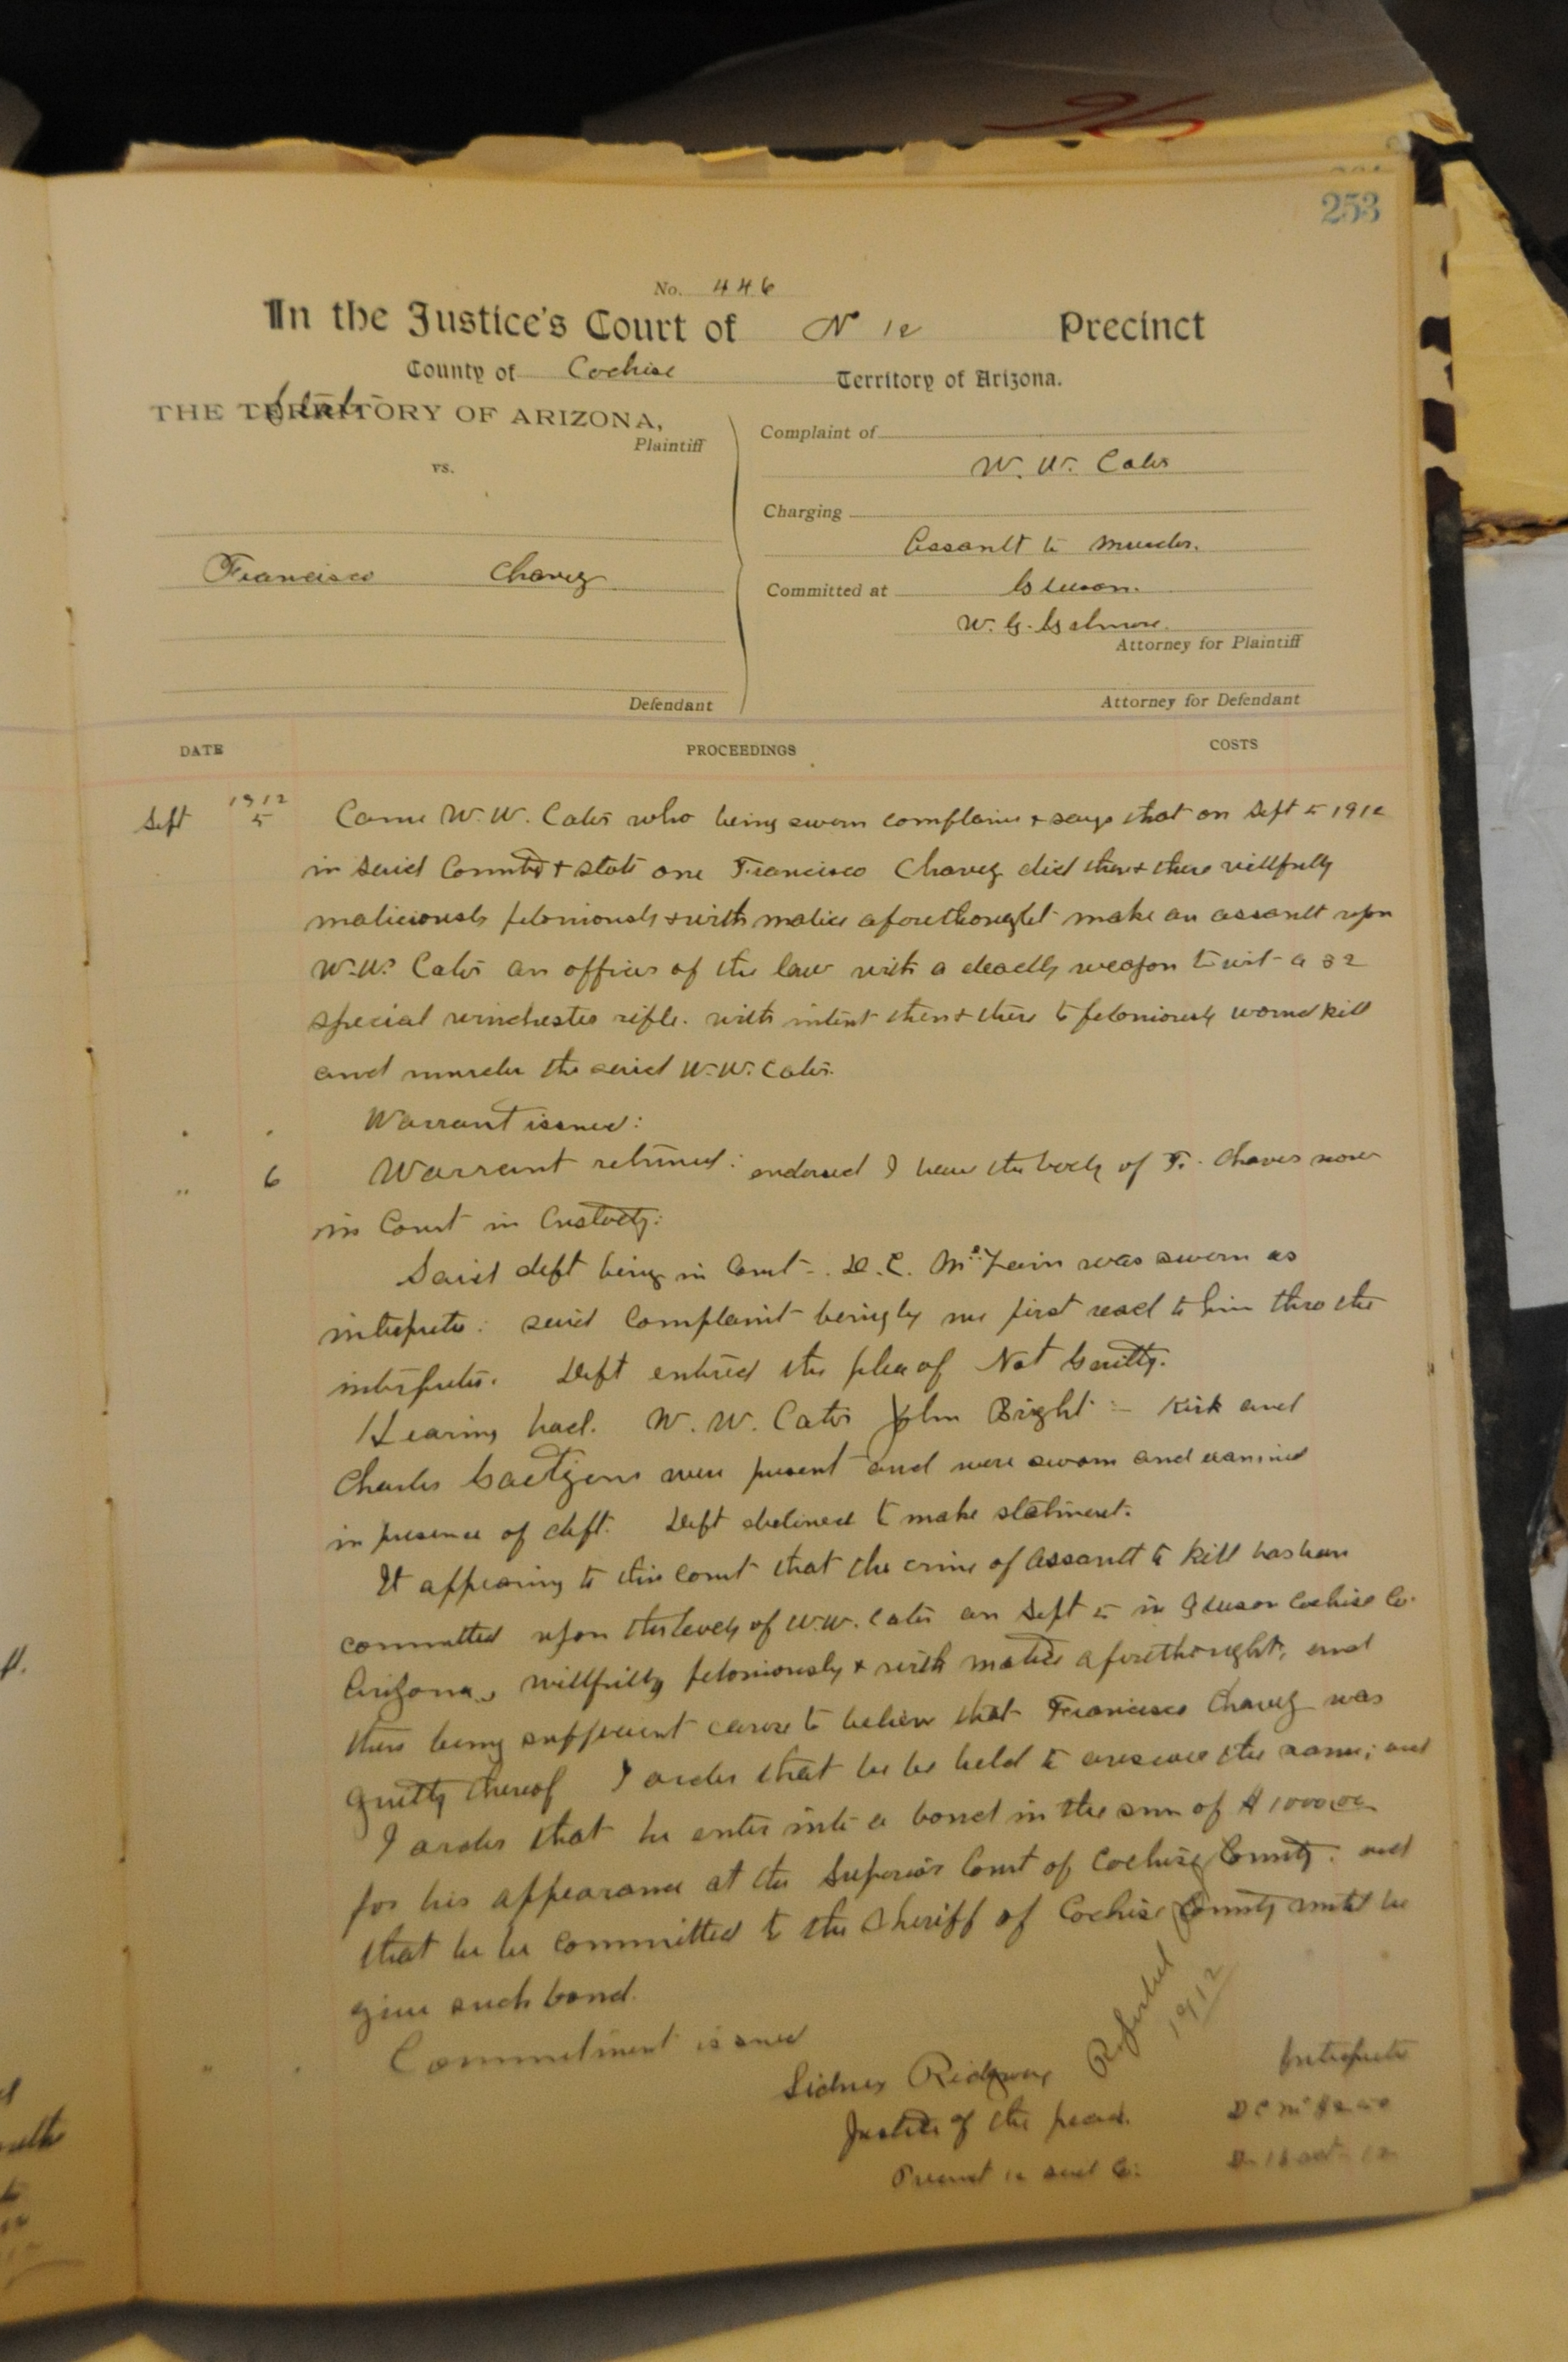 96
253
No. 446
In the Justice's Court of No 12 Precinct
County of Cochise Territory of Arizona.
State
THE TERRITORY OF ARIZONA,
Plaintiff
vs.
Francisco Chavez
Defendant
Complaint of
W. W. Cates
Charging
Assault to murder.
Committed at Gleeson.
W. G. Gilmore.
Attorney for Plaintiff
Attorney for Defendant
DATE PROCEEDINGS COSTS
Sept 1912 5 Came W. W. Cates who being sworn complains & says that on Sept 5 1912
in said County & state one Francisco Chavez did then & there willfully
maliciously feloniously & with malice aforethought make an assault upon
W. W. Cates an officer of the law with a deadly weapon to wit a 32
special winchester rifle. with intent then & there to feloniously wound kill
and murder the said W. W. Cates.
Warrant issued:
" 6 Warrant returned: endorsed I have the body of F. Chaves now
in Court in Custody:
Said deft being in Court D. C. was sworn as
interpreter: said Complaint being by me first read to him thro the
interpreter. Deft entered the plea of Not Guilty.
Hearing had. W. W. Cates John Bright - Kirk and
Charles Goetzens were present and were sworn and examined
in presence of deft. Deft declined to make statement.
It appearing to this Court that the crime of Assault to Kill has been
committed upon the body of W. W. Cates on Sept 5 in Gleeson Cochise Co.
Arizona, willfully feloniously & with malice aforethought, and
there being sufficient cause to believe that Francisco Chavez was
guilty thereof I order that he be held to answer the same; and
I order that he enter into a bond in the sum of $ 1000.00
for his appearance at the Superior Court of Cochise County. and
that he be committed to the Sheriff of Cochise County until he
give such bond.
" Commitment issued
Sidney Ridgway
Justice of the peace.
Precinct 12 said Co.
1912
Interpreter